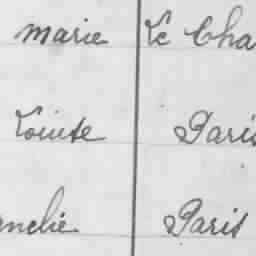 marie Le Cha
Louise Paris
anelie Paris